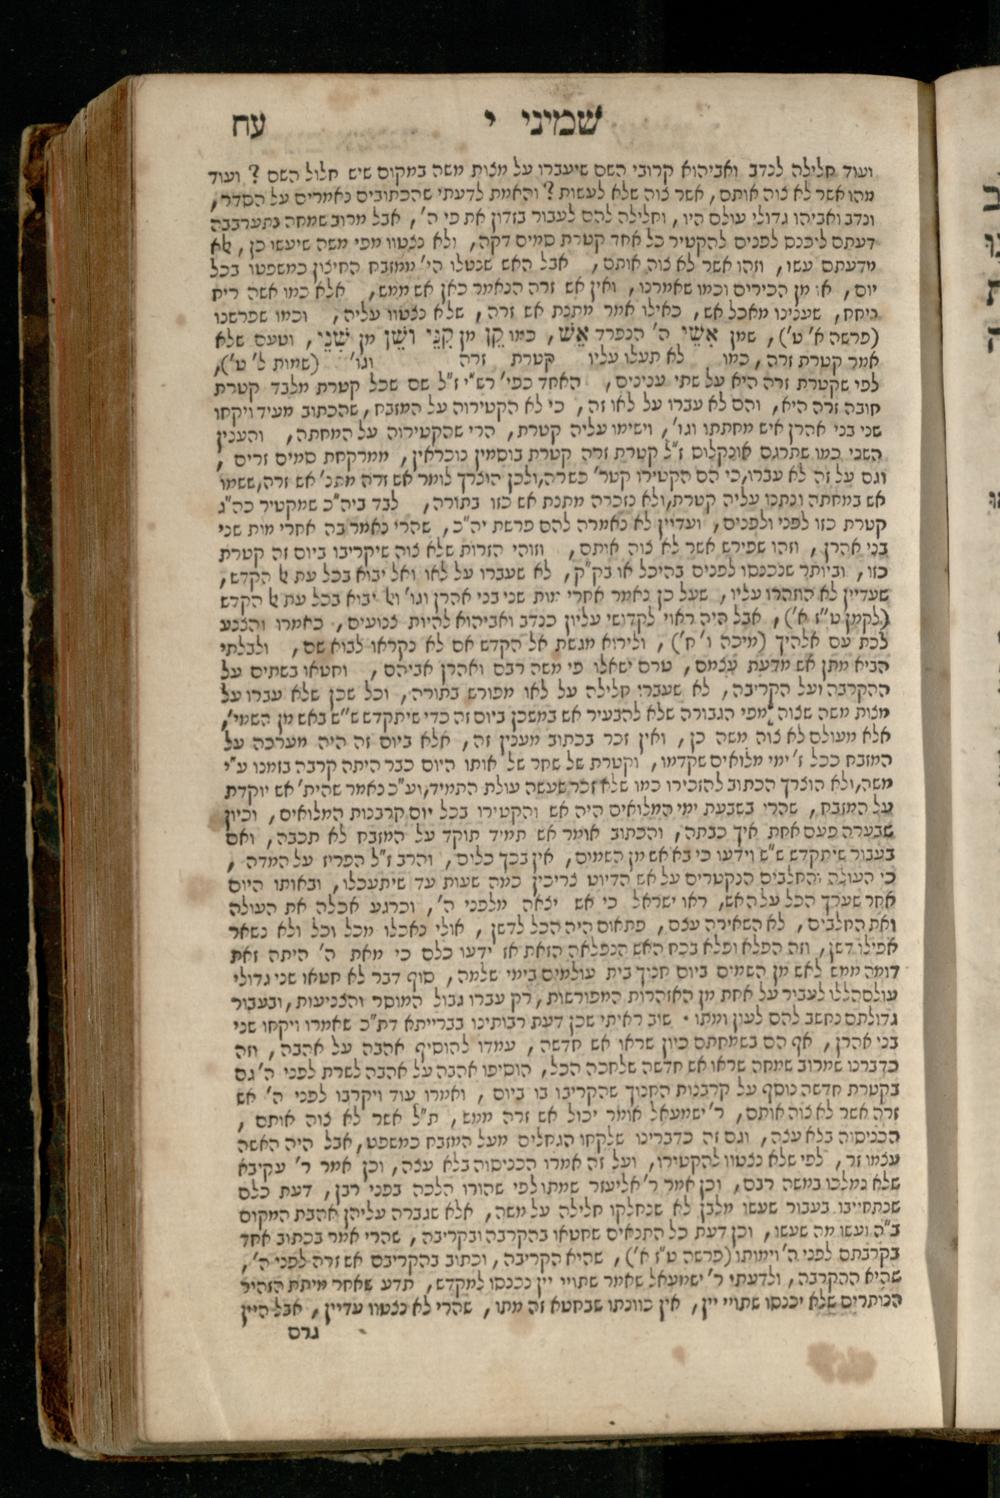 שמיני י עח
ועוד חלילה לנדב ואביהוא קרובי השם שיעברו על מצות משה במקום שיש חלול השם ? ועוד
מהו אשר לא צוה אותם, אשר צוה שלא לעשות ? והאמת לדעתי שהכתובים נאמרים על הסדר,
ונדב ואביהו גדולי עולם היו, וחלילה להם לעבור בזדון את פי ה', אבל מרוב שמחה נתערבבה
דעתם ליכנס לפנים להקטיר כל אחד קטרת סמים דקה, ולא נצטוו מפי משה שיעשו כן, אלא
מדעתם עשו, וזהו אשר לא צוה אותם, אבל האש שנטלו הי' ממזבח החיצון כמשפטו בכל
יום, או מן הכירים וכמו שאמרנו, ואין אש זרה הנאמר כאן אש ממש, אלא כמו אשה ריח
ניחח, שענינו מאכל אש, כאילו אמר מתנת אש זרה, שלא נצטוו עליה, וכמו שפרשנו
(פרשה א' ט'), שמן אִשֵׁי ה' הנפרד אֵשׁ, כמו קֵן מן קִנֵּי ושֵׁן מן שִׁנֵּי, וטעם שלא
אמר קטרת זרה, כמו לא תעלו עליו קטרת זרה וגו' (שמות ל' ט'),
לפי שקטרת זרה היא על שתי ענינים, האחד כפי' רש"י ז"ל שם שכל קטרת מלבד קטרת
חובה זרה היא, והם לא עברו על לאו זה, כי לא הקטירוה על המזבח, שהכתוב מעיד ויקחו
שני בני אהרן איש מחתתו וגו', וישימו עליה קטרת, הרי שהקטירוה על המחתה, והענין
השני כמו שתרגם אונקלוס ז"ל קטרת זרה קטרת בוסמין נוכראין, ממרקחת סמים זרים,
וגם על זה לא עברו, כי הם הקטירו קטר' כשרה, ולכן הוצרך לומר אש זרה מתנ' אש זרה, ששמו
אש במחתה ונתנו עליה קטרת, ולא נזכרה מתנת אש כזו בתורה, לבד ביה"כ שמקטיר כה"ג
קטרת כזו לפני ולפנים, ועדיין לא נאמרה להם פרשת יה"כ, שהרי נאמר בה אחרי מות שני
בני אהרן, וזהו שפירש אשר לא צוה אותם, וזוהי הזרות שלא צוה שיקריבו ביום זה קטרת
כזו, וביותר שנכנסו לפנים בהיכל או בק"ק, לא שעברו על לאו ואל יבוא בכל עת אל הקדש,
שעדיין לא הוזהרו עליו, שעל כן נאמר אחרי מות שני בני אהרן וגו' ואל יבוא בכל עת אל הקדש
(לקמן ט"ז א'), אבל היה ראוי לקדושי עליון כנדב ואביהוא להיות צנועים, כאמרו והצנע
לכת עם אלהיך (מיכה ו' ח'), ולירוא מגשת אל הקדש אם לא נקראו לבוא שם, ולבלתי
הביא מתן אש מדעת עצמם, טרם ישאלו פי משה רבם ואהרן אביהם, וחטאו בשתים על
ההקרבה ועל הקריבה, לא שעברו חלילה על לאו מפורש בתורה, וכל שכן שלא עברו על
מצות משה שצוה מפי הגבורה שלא להבעיר אש במשכן ביום זה כדי שיתקדש ש"ש באש מן השמי',
אלא מעולם לא צוה משה כן, ואין זכר בכתוב מענין זה, אלא ביום זה היה מערכה על
המזבח ככל ז' ימי מלואים שקדמו, וקטרת של שחר של אותו היום כבר היתה קרבה בזמנו ע"י
משה, ולא הוצרך הכתוב להזכירו כמו שלא זכר שעשה עולת התמיד, וע"כ נאמר שהית' אש יוקדת
על המזבח, שהרי בשבעת ימי המלואים היה אש והקטירו בכל יום קרבנות המלואים, וכיון
שבערה פעם אחת איך כבתה, והכתוב אומר אש תמיד תוקד על המזבח לא תכבה, ואם
בעבור שיתקדש ש"ש וידעו כי בא אש מן השמים, אין בכך כלום, והרב ז"ל הפריז על המדה,
כי העולה והחלבים הנקטרים על אש הדיוט צריכין כמה שעות עד שיתעכלו, ובאותו היום
אחר שערך הכל על האש, ראו ישראל כי אש יצאה מלפני ה', וכרגע אכלה את העולה
ואת החלבים, לא השאירה עצם, פתאום היה הכל לדשן, אולי נאכלו מכל וכל ולא נשאר
אפילו דשן, וזה הפלא ופלא בכח האש הנפלאה הזאת אז ידעו כלם כי מאת ה' היתה זאת
דומה ממש לאש מן השמים ביום חנוך בית עולמים בימי שלמה, סוף דבר לא חטאו שני גדולי
עולם הללו לעבור על אחת מן האזהרות המפורשות, רק עברו גבול המוסר והצניעות, ובעבור
גדולתם נחשב להם לעון ומתו. שוב ראיתי שכן דעת רבותינו בברייתא דת"כ שאמרו ויקחו שני
בני אהרן, אף הם בשמחתם כיון שראו אש חדשה, עמדו להוסיף אהבה על אהבה, וזה
כדברנו שמרוב שמחה שראו אש חדשה שלחכה הכל, הוסיפו אהבה על אהבה לשרת לפני ה' גם
בקטרת חדשה נוסף על קרבנות החנוך שהקריבו בו ביום, ואמרו עוד ויקרבו לפני ה' אש
זרה אשר לא צוה אותם, ר' ישמעאל אומר יכול אש זרה ממש, ת"ל אשר לא צוה אותם,
הכניסוה בלא עצה, וגם זה כדברינו שלקחו הגחלים מעל המזבח כמשפט, אבל היה האשה
עצמו זר, לפי שלא נצטוו להקטירו, ועל זה אמרו הכניסוה בלא עצה, וכן אמר ר' עקיבא
שלא נמלכו במשה רבם, וכן אמר ר' אליעזר שמתו לפי שהורו הלכה בפני רבן, דעת כלם
שנתחייבו בעבור שעשו מלבן לא שנחלקו חלילה על משה, אלא שגברה עליהן אהבת המקום
ב"ה ועשו מה שעשו, וכן דעת כל התנאים שחטאו בהקרבה ובקריבה, שהרי אמר בכתוב אחד
בקרבתם לפני ה' וימותו (פרשה ט"ז א'), שהיא הקריבה, וכתוב בהקריבם אש זרה לפני ה',
שהיא ההקרבה, ולדעתי ר' ישמעאל שאמר שתויי יין נכנסו למקדש, תדע שאחר מיתתן הזהיר
הנותרים שלא יכנסו שתויי יין, אין כוונתו שבחטא זה מתו, שהרי לא נצטוו עדיין, אבל היין
גרם